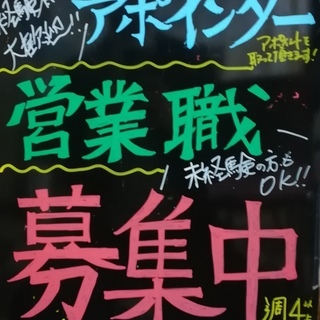 大歓迎!!
アポインター
アポイントを
取って頂きます!
営業職
未経験の方も
OK!!
募集中
週4以上